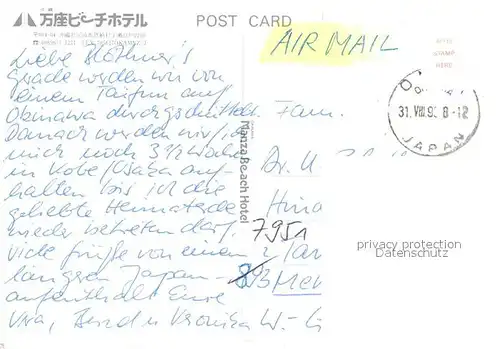 万座ビーチホテル
POST CARD
AIR MAIL
PLACE STAMP HERE
Liebe Köthner's
Gerade werden wir von
einem Taifun auf
Okinawa durchgeschüttelt.
Danach werden wir,
mich noch 3 1/2 Wochen
in Kobe/Osaka auf-
halten bis ich die
geliebte Heimaterde
wieder betreten darf.
Viele Grüße von einem
längeren Japan-
aufenthalt Eure
Bernd u Veronika
Manza Beach Hotel
Fam.
31. VIII. 8-12
JAPAN
7951
privacy protection
Datenschutz
W.-G